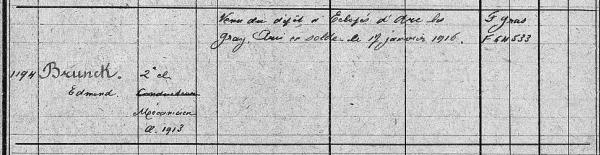 Venu du dépôt d'Eclopés d'Arc les
Gray. Pris en solde le 17 janvier 1916.
G gras
F 64533
1194 Brunck.
Edmond
2e cl
Conducteur
Mécanicien
Cl. 1913